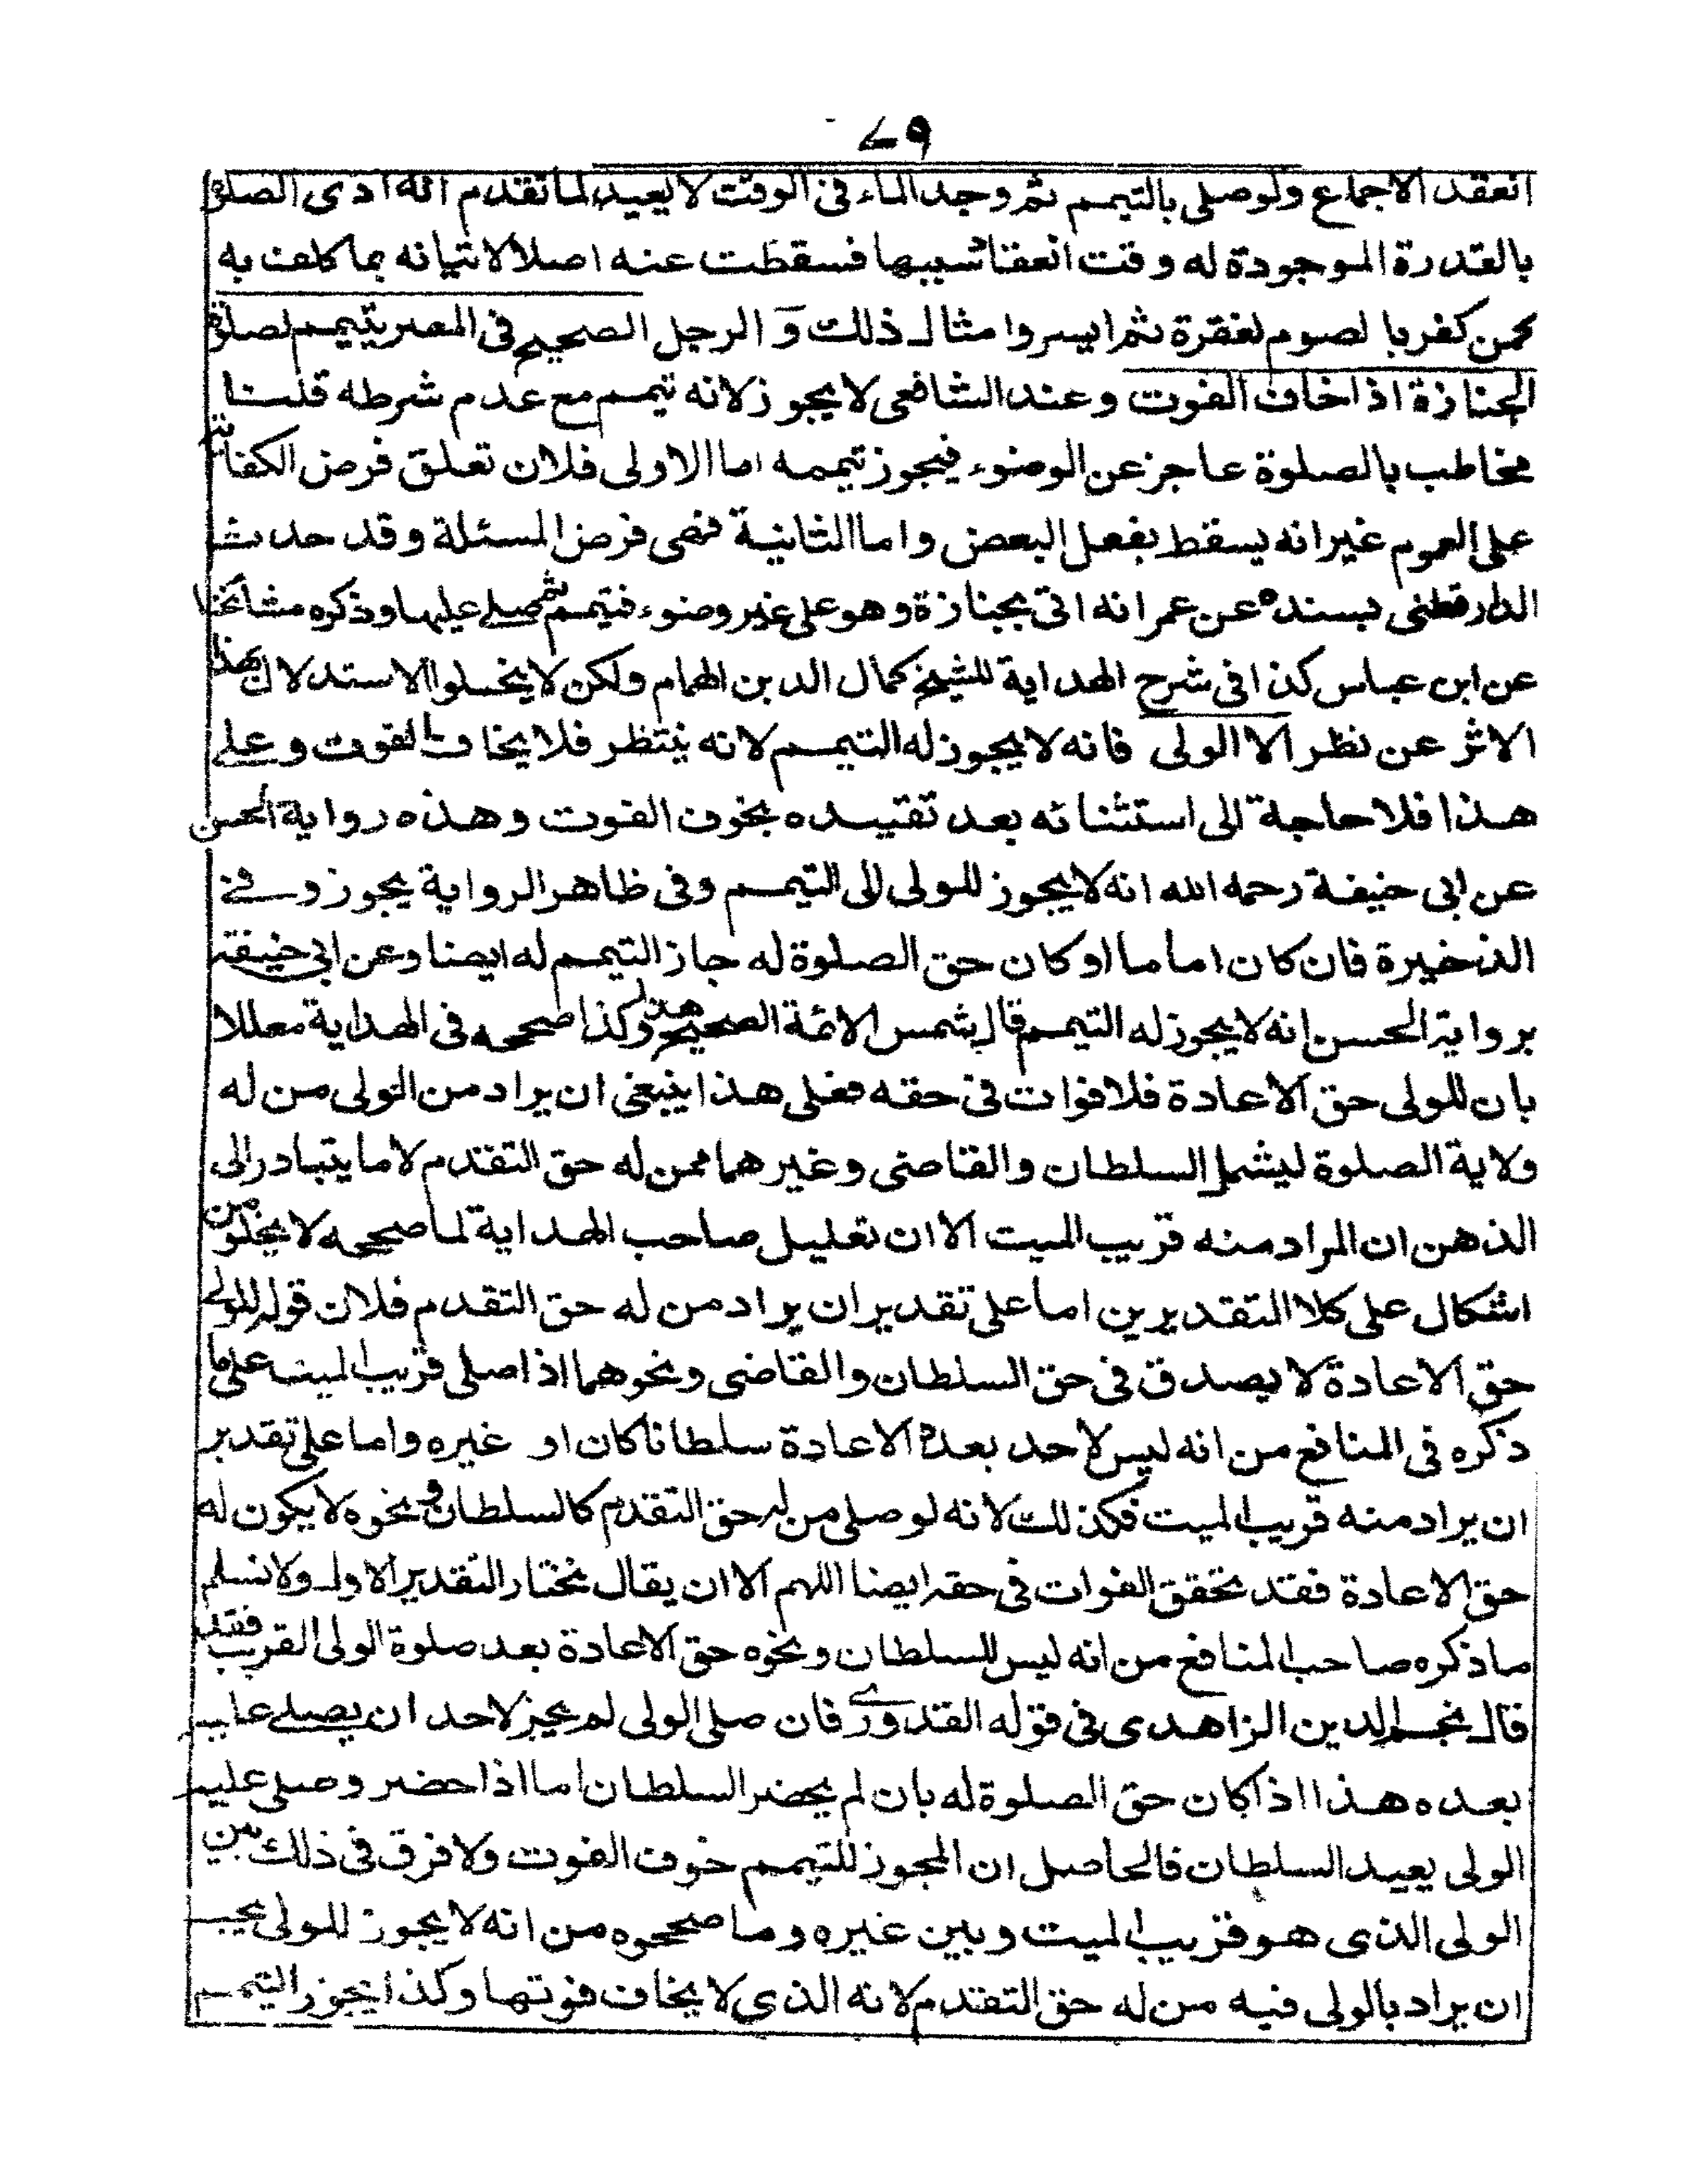 ٧٩
انعقد الاجماع ولوصلى بالتيمم ثم وجد الماء فى الوقت لا يعيد لما تقدم انه ادى الصلوة
بالقدرة الموجودة له وقت انعقاد سببها فسقطت عنه اصلا لاتيانه بما كلف به
كمن كفر بالصوم لفقره ثم ايسر وامثال ذلك و الرجل الصحيح فى المصر يتيمم لصلوة
الجنازة اذا خاف الفوت وعند الشافعى لا يجوز لانه تيمم مع عدم شرطه قلنا
مخاطب بالصلوة عاجز عن الوضوء فيجوز تيممه اما الاولى فلان تعلق فرض الكفاية
على العموم غير انه يسقط بفعل البعض واما الثانية ففى فرض المسئلة وقد حديث
الدارقطنى بسنده عن عمر انه اتى بجنازة وهو على غير وضوء فتيمم ثم صلى عليها وذكره مشائخنا
عن ابن عباس كذا فى شرح الهداية للشيخ كمال الدين الهمام ولكن لا يخلوا الاستدلال بهذا
الاثر عن نظر الا الولى فانه لا يجوز له التيمم لانه ينتظر فلا يخاف الفوت وعلى
هذا فلا حاجة الى استثنائه بعد تقييده بخوف الفوت وهذه رواية الحسن
عن ابى حنيفة رحمه الله انه لا يجوز للولى الى التيمم وفى ظاهر الرواية يجوز وفى
الذخيرة فان كان اماما او كان حق الصلوة له جاز التيمم له ايضا وعن ابى حنيفة
برواية الحسن انه لا يجوز له التيمم قال شمس الائمة الصحيح هذا وكذا صححه فى الهداية معللا
بان للولى حق الاعادة فلا فوات فى حقه فعلى هذا ينبغى ان يراد من الولى من له
ولاية الصلوة ليشمل السلطان والقاضى وغيرهما ممن له حق التقدم لا ما يتبادر الى
الذهن ان المراد منه قريب الميت الا ان تعليل صاحب الهداية لما صححه لا يخلو من
اشكال على كلا التقديرين اما على تقدير ان يراد من له حق التقدم فلان قوله للولى
حق الاعادة لا يصدق فى حق السلطان والقاضى ونحوهما اذا صلى قريب الميت على ما
ذكره فى المنافع من انه ليس لاحد بعده الاعادة سلطانا كان او غيره واما على تقدير
ان يراد منه قريب الميت فكذلك لانه لو صلى من له حق التقدم كالسلطان ونحوه لا يكون له
حق الاعادة فقد تحقق الفوات فى حقه ايضا اللهم الا ان يقال نختار التقدير الاول ولا نسلم
ما ذكره صاحب المنافع من انه ليس للسلطان ونحوه حق الاعادة بعد صلوة الولى القريب فقد
قال نجم الدين الزاهدى فى قوله القدورى فان صلى الولى لم يجز لاحد ان يصلى عليه
بعده هذا اذا كان حق الصلوة له بان لم يحضر السلطان اما اذا حضر وصلى عليه
الولى يعيد السلطان فالحاصل ان المجوز للتيمم خوف الفوت ولا فرق فى ذلك بين
الولى الذى هو قريب الميت وبين غيره وما صححوه من انه لا يجوز للولى يجب
ان يراد بالولى فيه من له حق التقدم لانه الذى لا يخاف فوتها وكذا يجوز التيمم